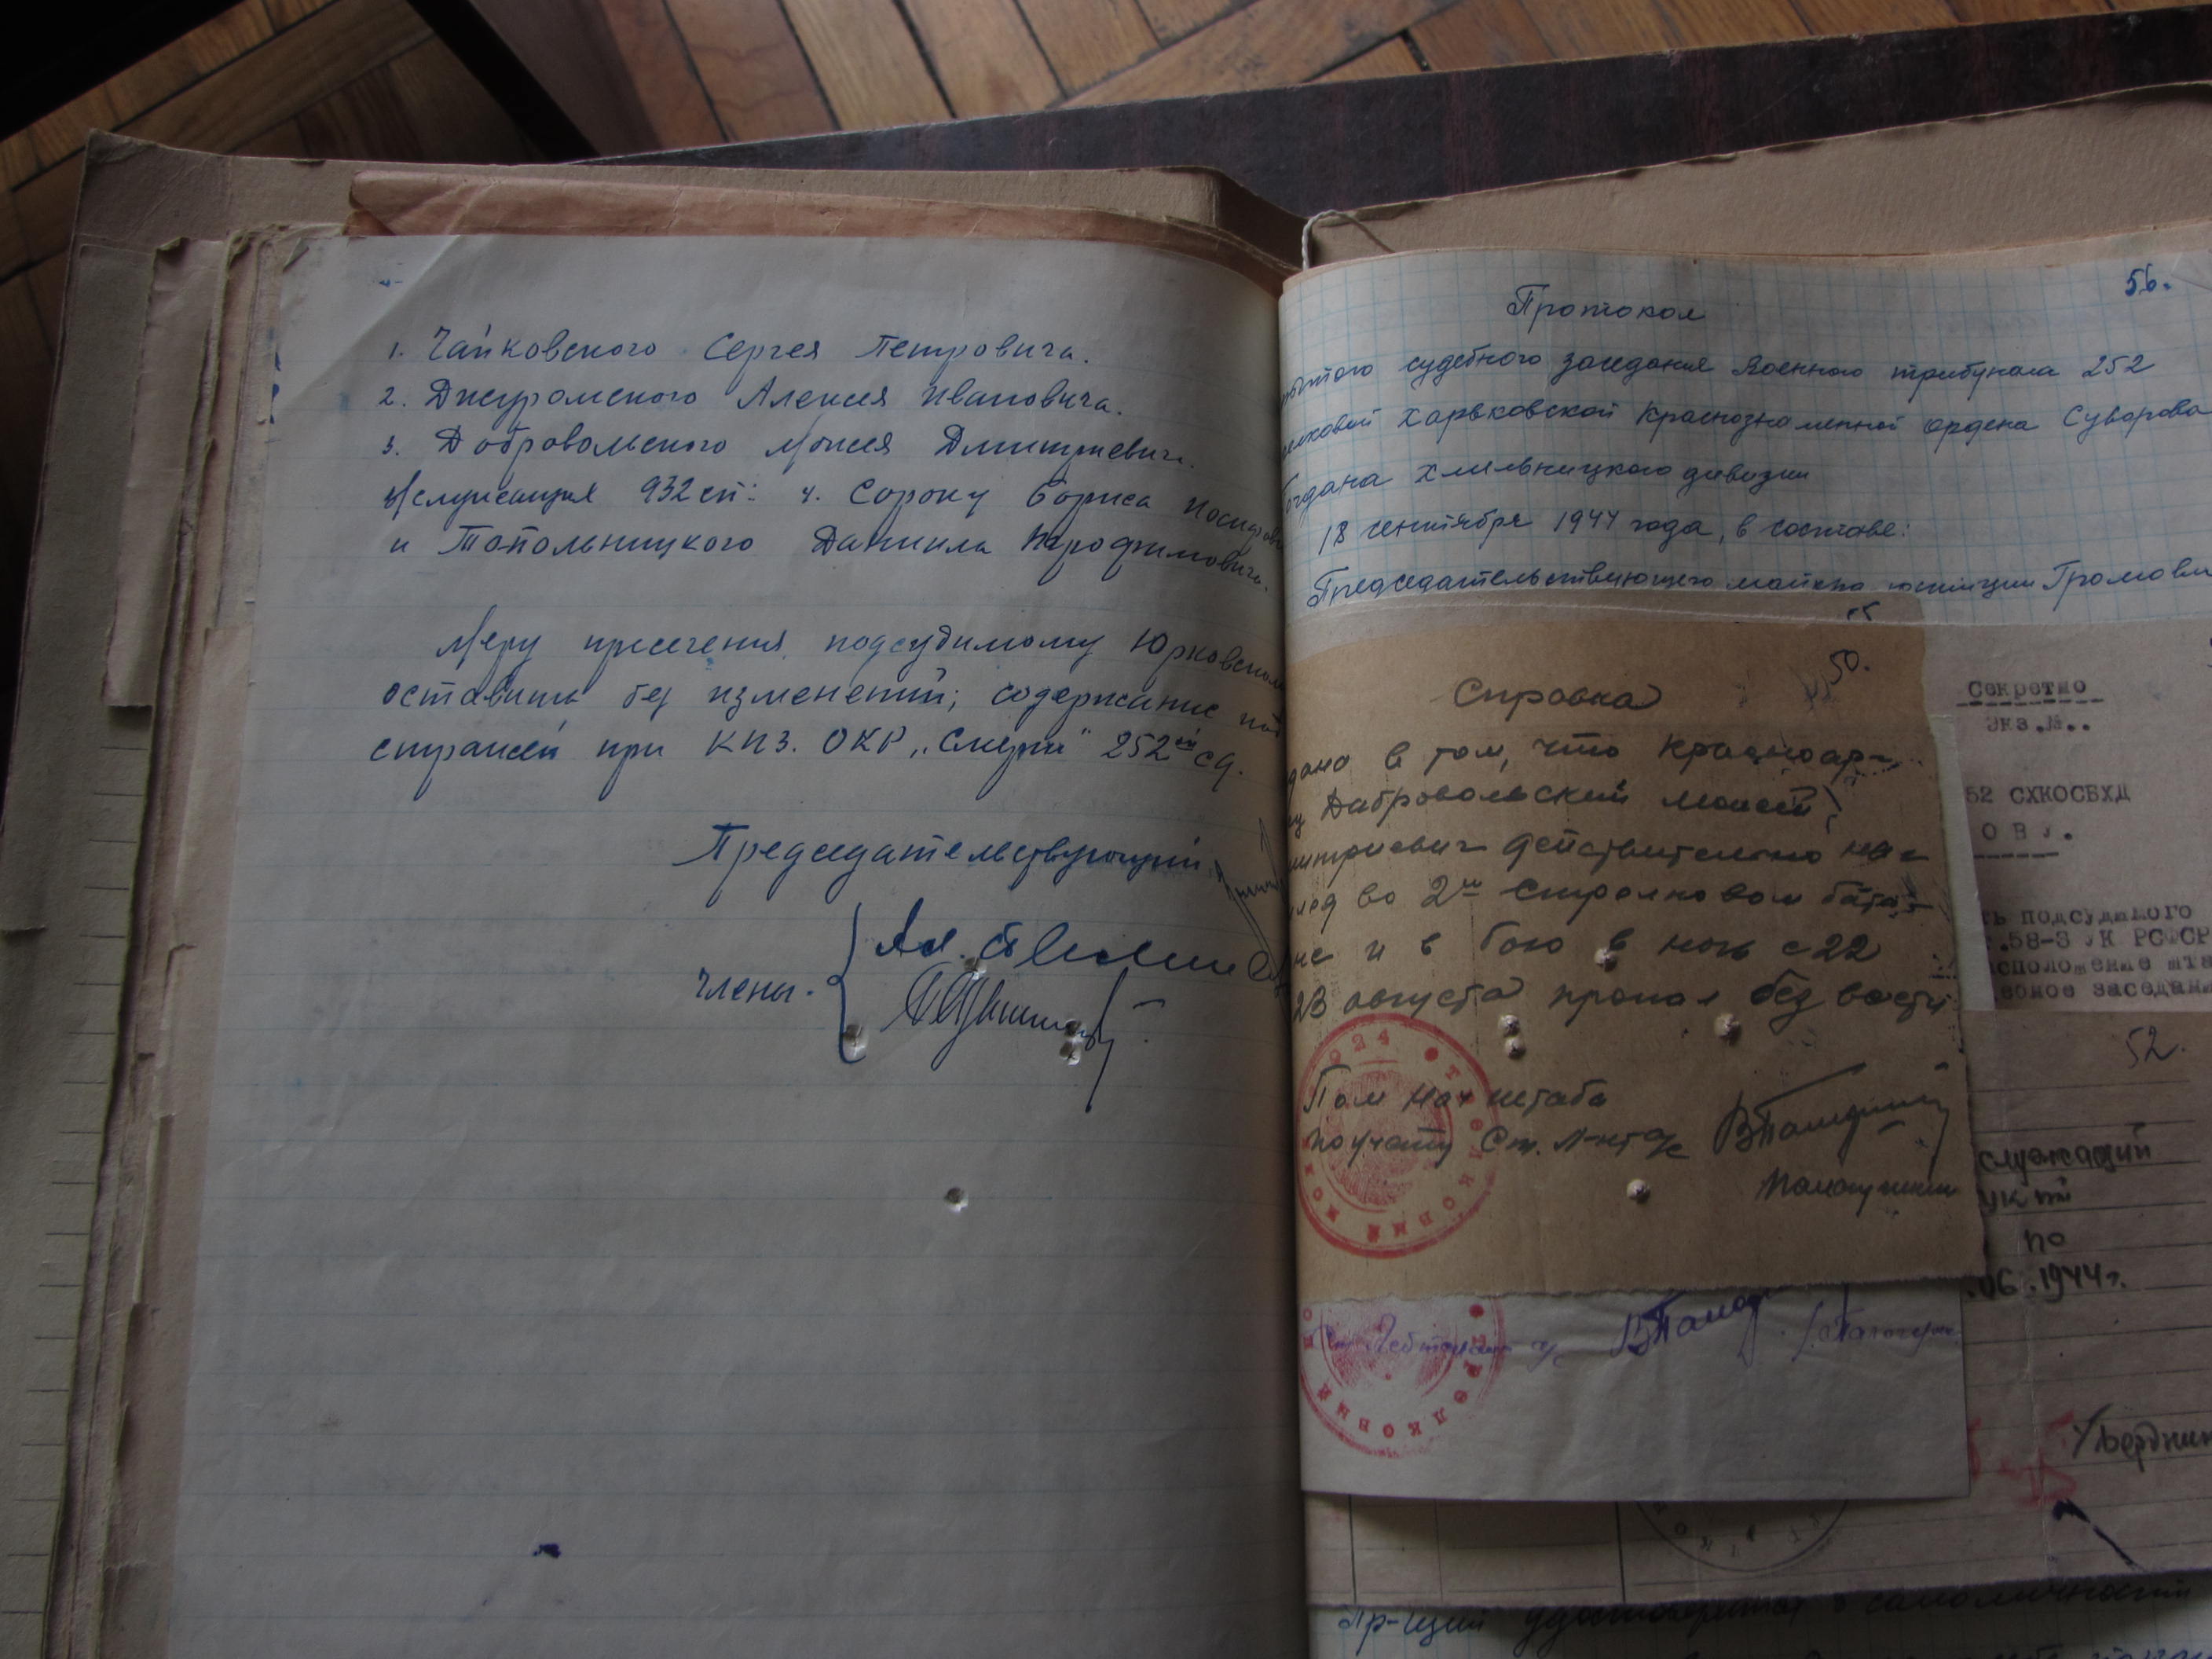 1. Чайковского Сергея Петровича.
2. Джуромского Алексея Ивановича.
3. Добровольского Моисея Дмитриевича.
932 сп: 4. Сороку Бориса
и Топольницкого Даниила Трофимовича.
Меру пресечения подсудимому Юрковскому
оставить без изменений; содержание под
стражей при КПЗ. ОКР „Смерш" 252ой сд.
Председательствующий
Члены.
56.
Протокол
судебного заседания Военного трибунала 252
Харьковской Краснознаменной ордена Суворова
Богдана Хмельницкого дивизии
18 сентября 1944 года, в составе:
Председательствующего майора юстиции
50.
Справка
дана в том, что красноар-
Добровольский Моисей
митриевич действительно на-
во 2м стрелковом бата-
не и в бою в ночь с 22
23 августа пропал без вести
Пом нач штаба
по учету Ст. л-нт а/с
Секретно
Экз.№..
52 СХКОСБХД
О В У.
ть подсудимого
.58-3 УК РСФСР
сположение шта
ебное заседани
52.
служащий
по
.06.1944г.
удостоверился в самоличности